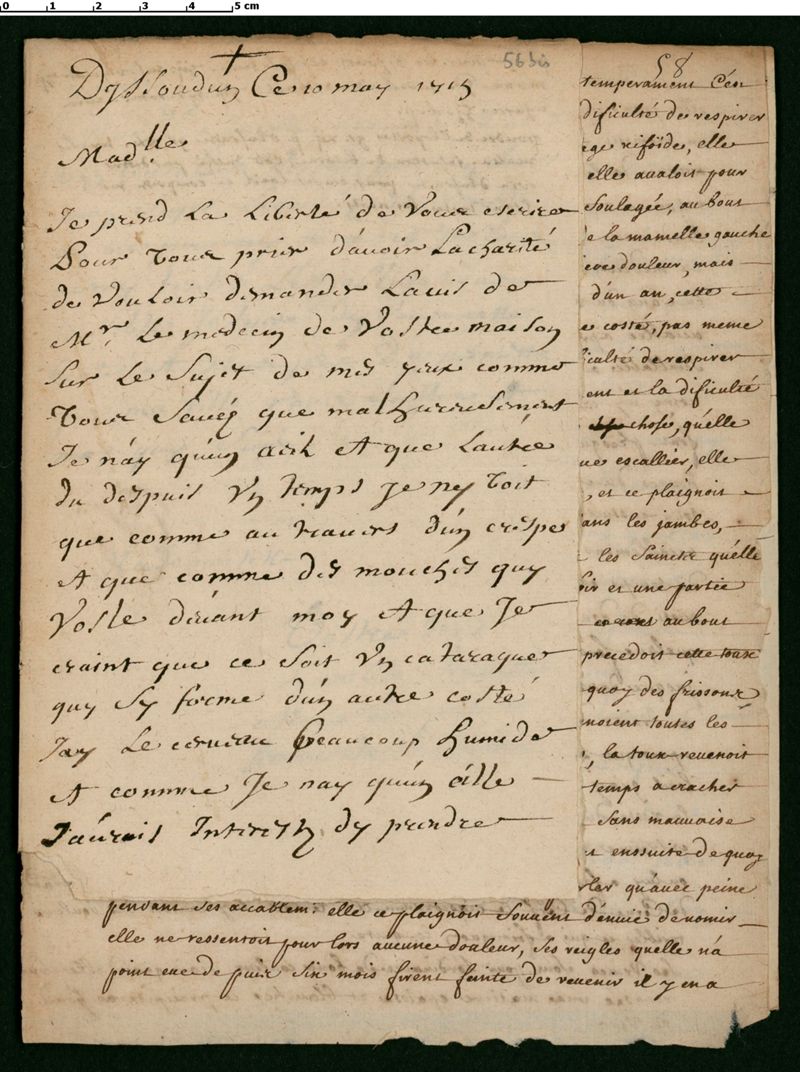 0 1 2 3 4 5 cm
563is
Dyssoudun Ce 10 may 1715
Mad.lle
Je prend La Liberté de Vous escrire
Pour Vous prier d'avoir La charité
de Vouloir demander Lavis de
Mr. Le medecin de Vostre maison
Sur Le Sujet de mes yeux comme
Vous Sauéz que malHureusement
Je n'ay qu'un oeil et que Lautre
du despuis Un temps je ney Voit
que comme au travers d'un crespe
et que comme des mouches quy
Volle deuant moy et que Je
craint que ce soit Un cataraque
quy Sy forme d'un autre costé
Jay Le cerueau beaucoup Humide
et comme Je nay qu'un oille
J'aurois Interest dy prendre
58
temperament C'est
dificulté de respirer
ge xifoïde, elle
elle aualoit pour
soulagée, au bout
e la mamelle gauche
eue douleur, mais
d'un an, cette
e costé, pas meme
iculté de respirer
ent et la dificulté
chose, qu'elle
ue escallier, elle
, et ce plaignoit
ans les jambes,
les Saincte qu'elle
oir et une partie
au bout
precedoit cette toux
quoy des frissons
noient toutes les
, la toux reuenoit
temps a cracher
Sans mauuaise
t enssuite de quoy
rler qu'auec peine
pendant ses accablem: elle ce plaignoit Souuent d'enuie de uomir
elle ne ressentoit pour lors aucune douleur, ses reigles quelle n'a
point eue de puis Six mois firent feinte de reuenir il y en a